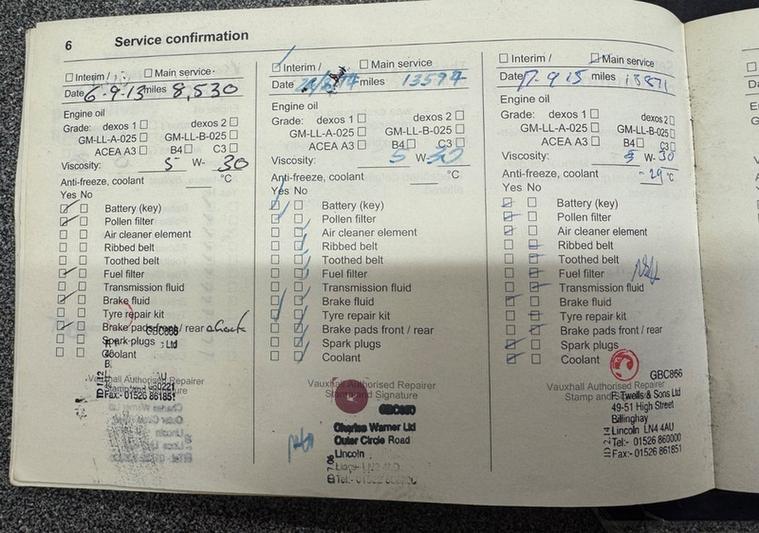 6 Service confirmation
Interim / Main service
Date 6.9.13 miles 8,530
Engine oil
Grade: dexos 1 dexos 2
GM-LL-A-025 GM-LL-B-025
ACEA A3 B4 C3
Viscosity: 5 W- 30
Anti-freeze, coolant °C
Yes No
Battery (key)
Pollen filter
Air cleaner element
Ribbed belt
Toothed belt
Fuel filter
Transmission fluid
Brake fluid
Tyre repair kit
Brake pads front / rear
Spark plugs
Coolant
Vauxhall Authorised Repairer
Fax:- 01526 861851
Interim / Main service
Date miles 13597
Engine oil
Grade: dexos 1 dexos 2
GM-LL-A-025 GM-LL-B-025
ACEA A3 B4 C3
Viscosity: 5 W- 30
Anti-freeze, coolant °C
Yes No
Battery (key)
Pollen filter
Air cleaner element
Ribbed belt
Toothed belt
Fuel filter
Transmission fluid
Brake fluid
Tyre repair kit
Brake pads front / rear
Spark plugs
Coolant
Vauxhall Authorised Repairer
Stamp and Signature
Charles Warner Ltd
Outer Circle Road
Lincoln
Interim / Main service
Date 7.9.15 miles
Engine oil
Grade: dexos 1 dexos 2
GM-LL-A-025 GM-LL-B-025
ACEA A3 B4 C3
Viscosity: 5 W- 30
Anti-freeze, coolant -29 °C
Yes No
Battery (key)
Pollen filter
Air cleaner element
Ribbed belt
Toothed belt
Fuel filter
Transmission fluid
Brake fluid
Tyre repair kit
Brake pads front / rear
Spark plugs
Coolant
GBC856
Vauxhall Authorised Repairer
Stamp and
F. Twells & Sons Ltd
49-51 High Street
Billinghay
Lincoln LN4 4AU
Tel:- 01526 860000
Fax:- 01526 861851